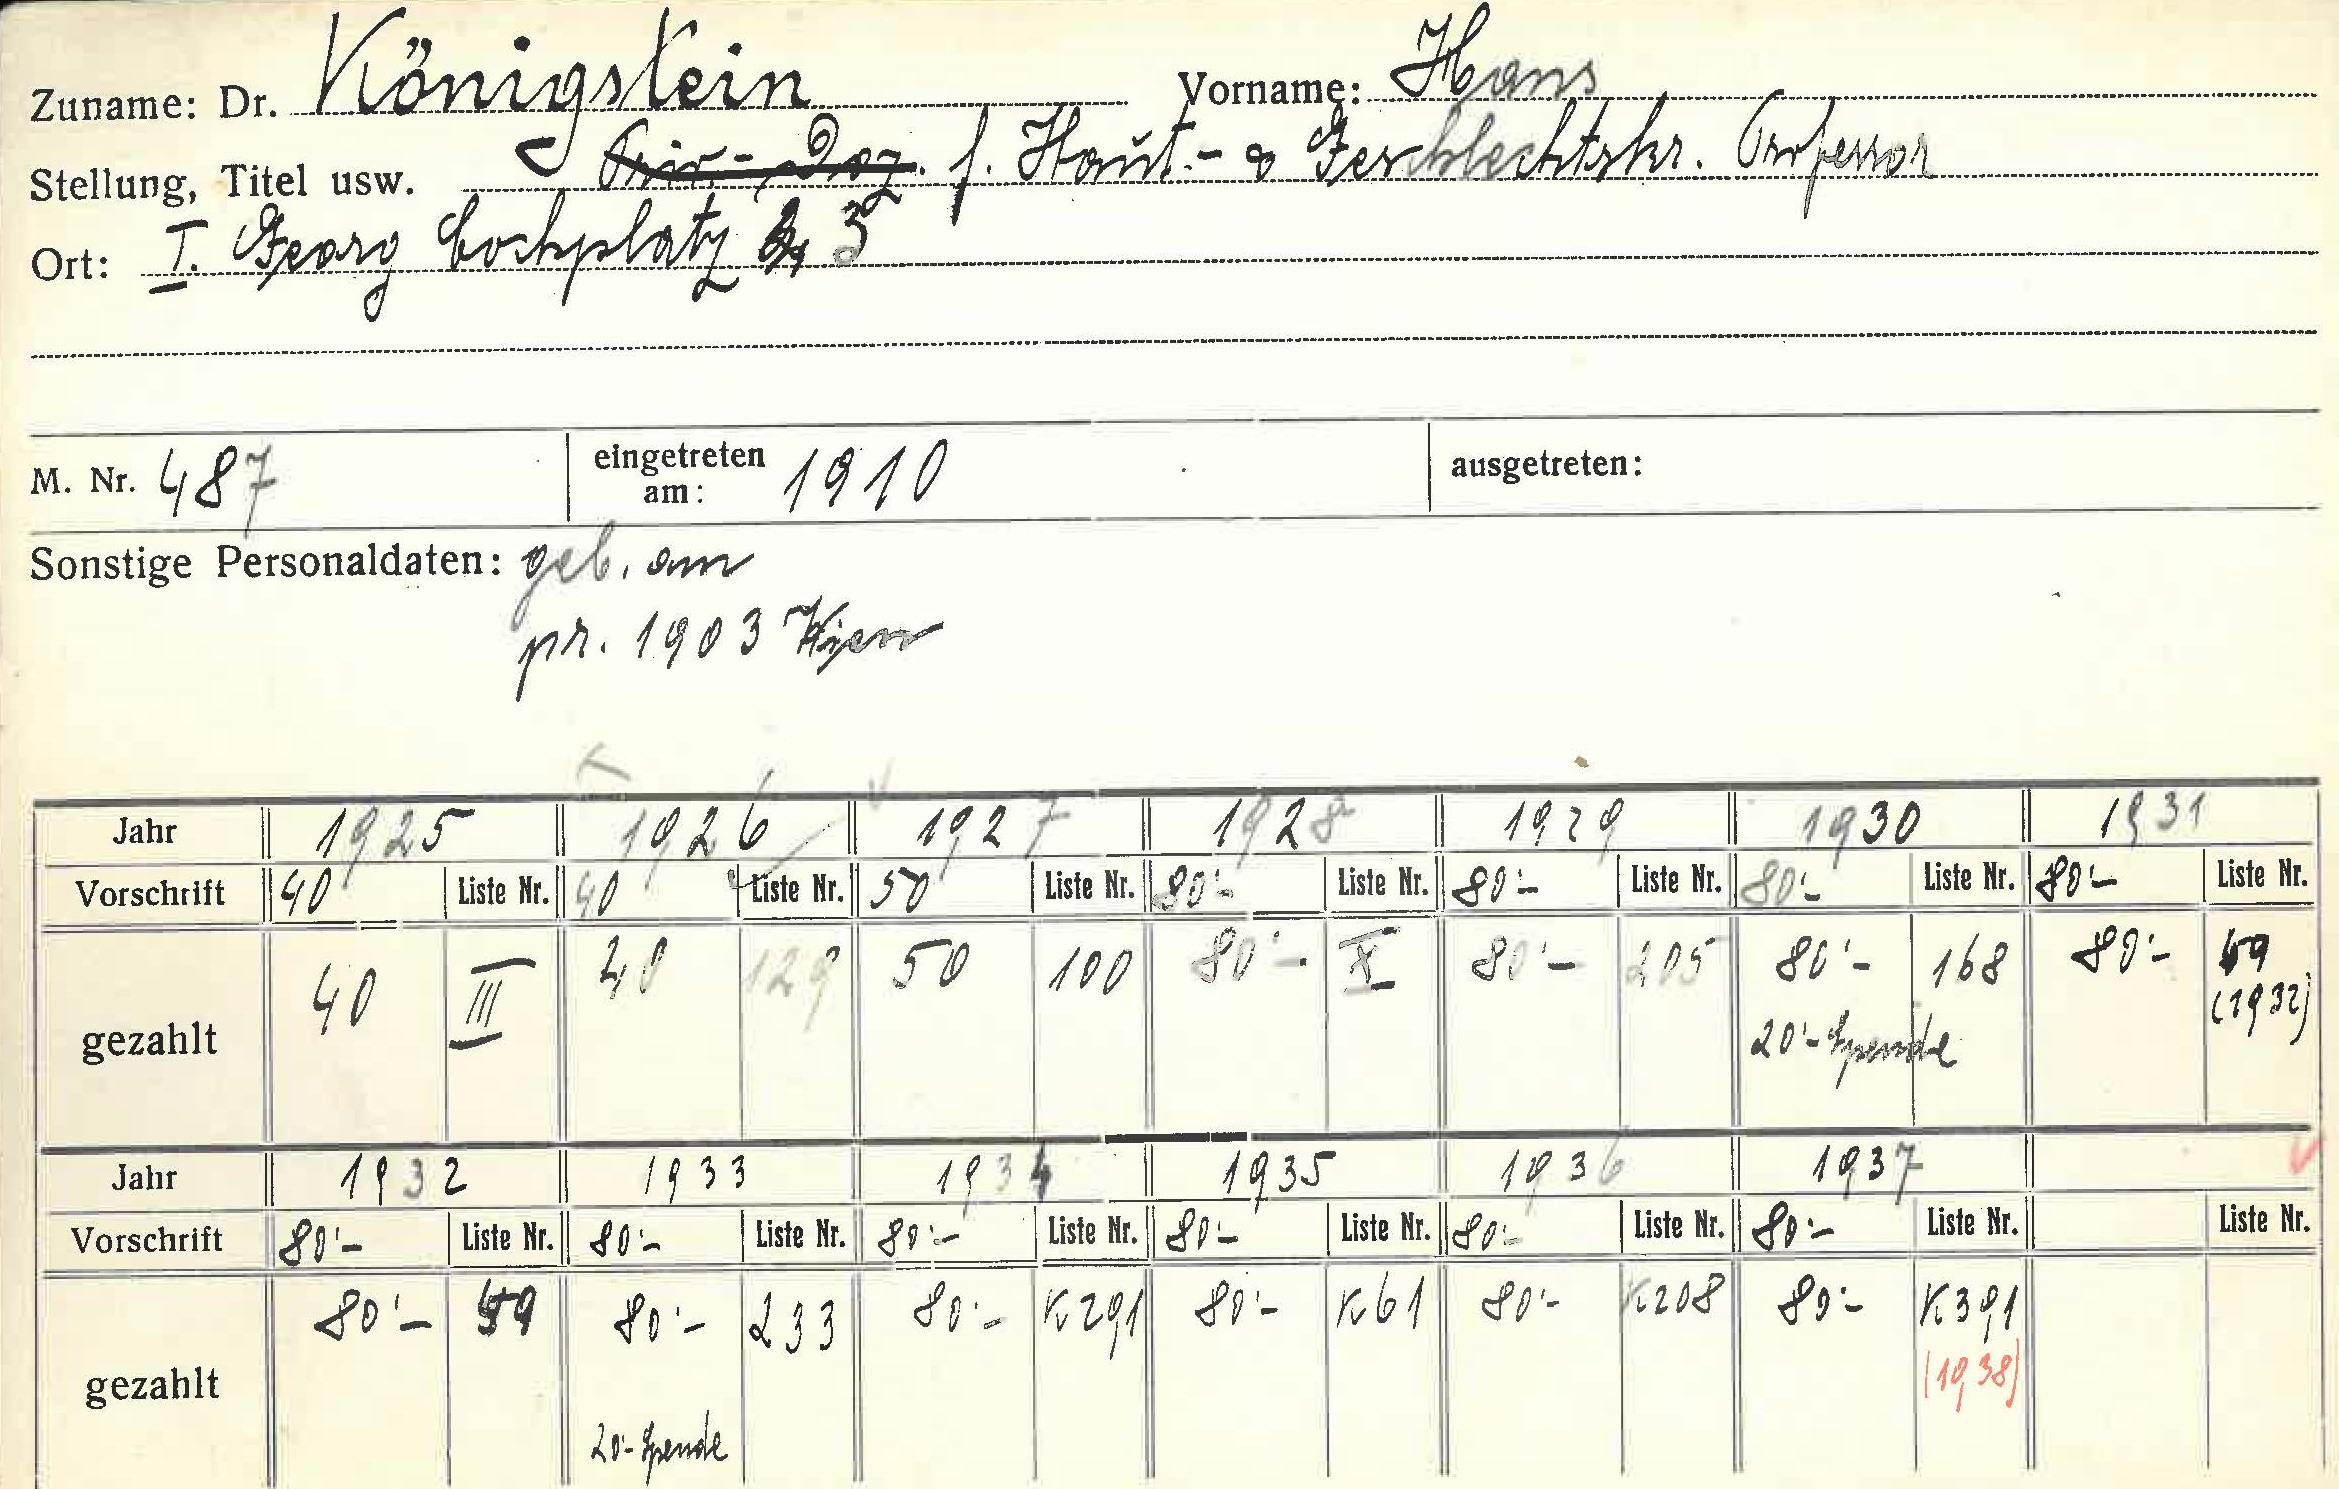 Zuname: Dr. Königstein Vorname: Hans
Stellung, Titel usw. Priv.-Doz. f. Haut.- & Geschlechtskr. Professor
Ort: I. Georg Cochplatz 3
M. Nr. 487 eingetreten am: 1910 ausgetreten:
Sonstige Personaldaten: geb. am
pr. 1903 Wien
Jahr 1925 1926 1927 1928 1929 1930 1931
Vorschrift 40 Liste Nr. 40 Liste Nr. 50 Liste Nr. 80'- Liste Nr. 80'- Liste Nr. 80'- Liste Nr. 80'- Liste Nr.
gezahlt 40 III 40 129 50 100 80'- X 80'- 205 80'- 168 80'- 49
20'- Spende (1932)
Jahr 1932 1933 1934 1935 1936 1937
Vorschrift 80'- Liste Nr. 80'- Liste Nr. 80'- Liste Nr. 80'- Liste Nr. 80'- Liste Nr. 80'- Liste Nr. Liste Nr.
gezahlt 80'- 49 80'- 233 80'- K291 80'- K61 80'- K208 80'- K391
(1938)
20'- Spende